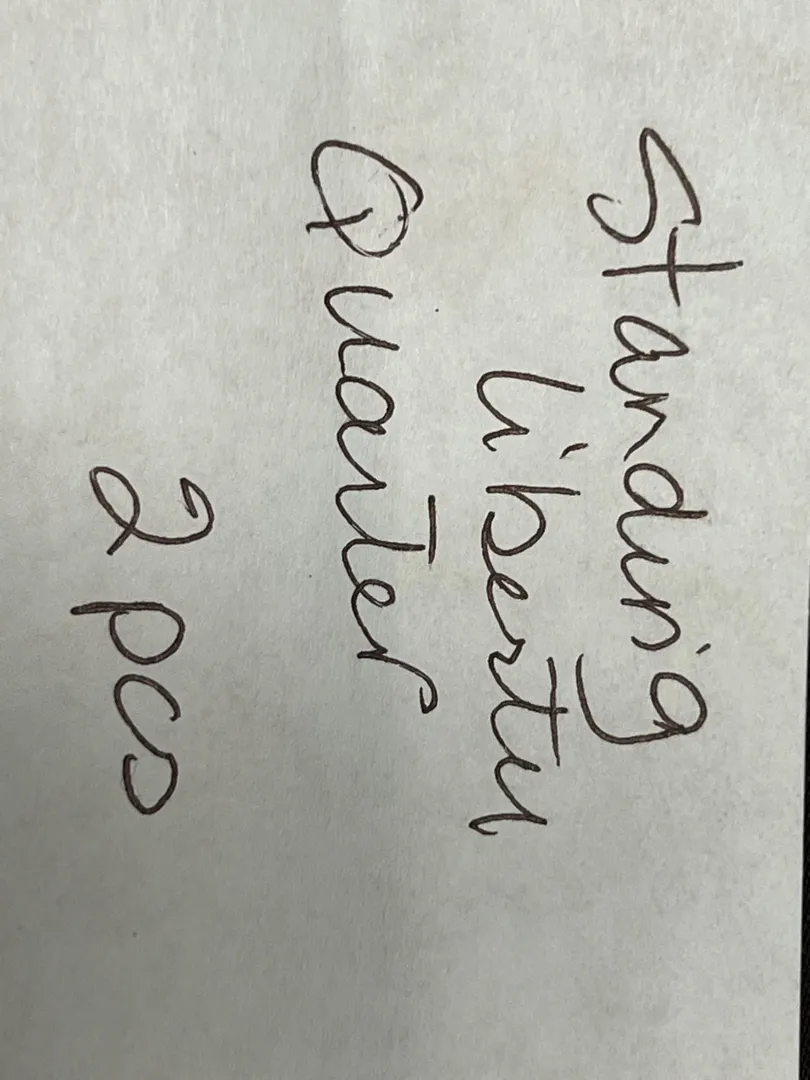 Standing
Liberty
Quarter
2 pcs